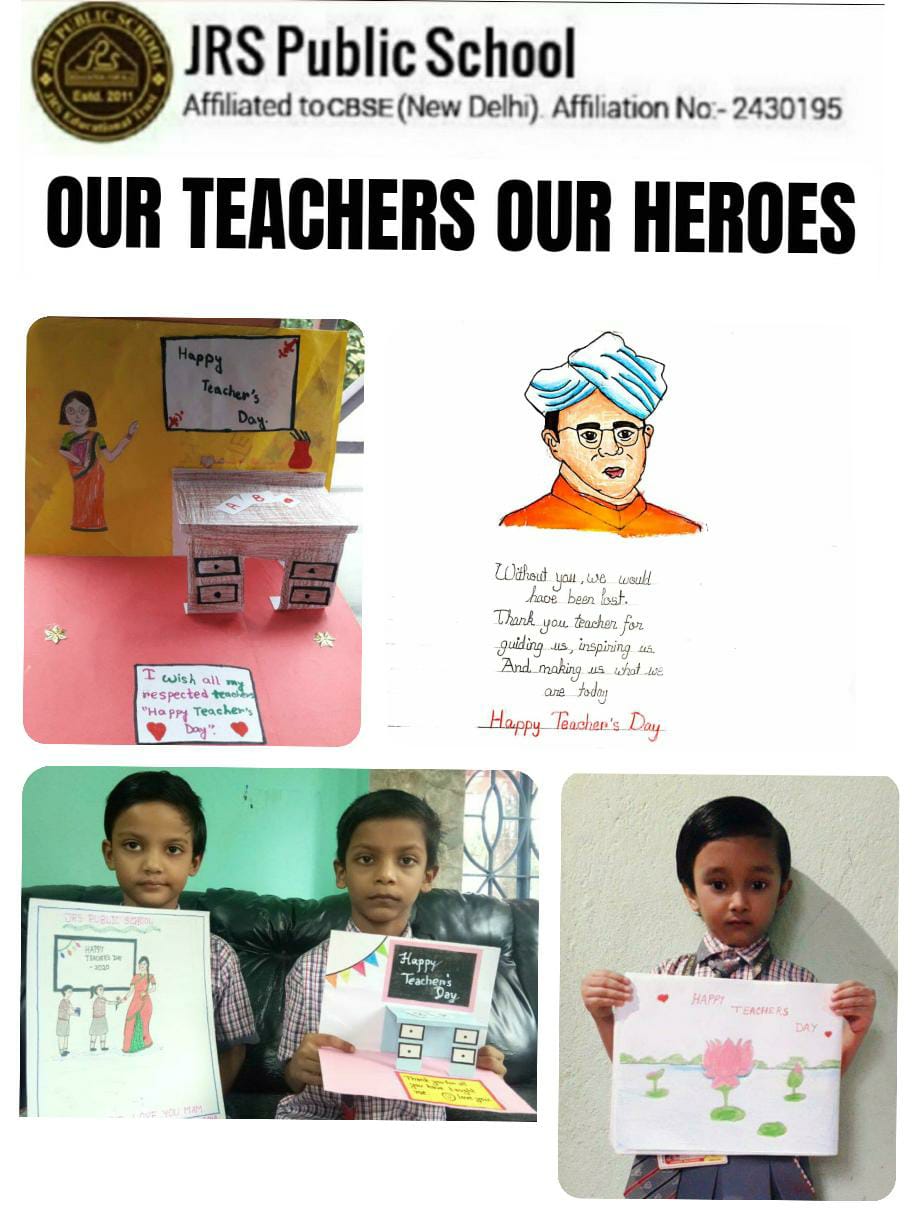 JRS PUBLIC SCHOOL
JRS
Estd. 2011
JRS Educational Trust
JRS Public School
Affiliated to CBSE (New Delhi). Affiliation No:- 2430195
OUR TEACHERS OUR HEROES
Happy
Teacher's
Day.
A B
I wish all my
respected teachers
"Happy Teacher's
Day".
Without you, we would
have been lost.
Thank you teacher for
guiding us, inspiring us
And making us what we
are today
Happy Teacher's Day
JRS PUBLIC SCHOOL
HAPPY
TEACHER'S DAY
- 2020
LOVE YOU MAM
Happy
Teacher's
Day
Thank you for all
you have taught
me I love you
HAPPY
TEACHERS
DAY